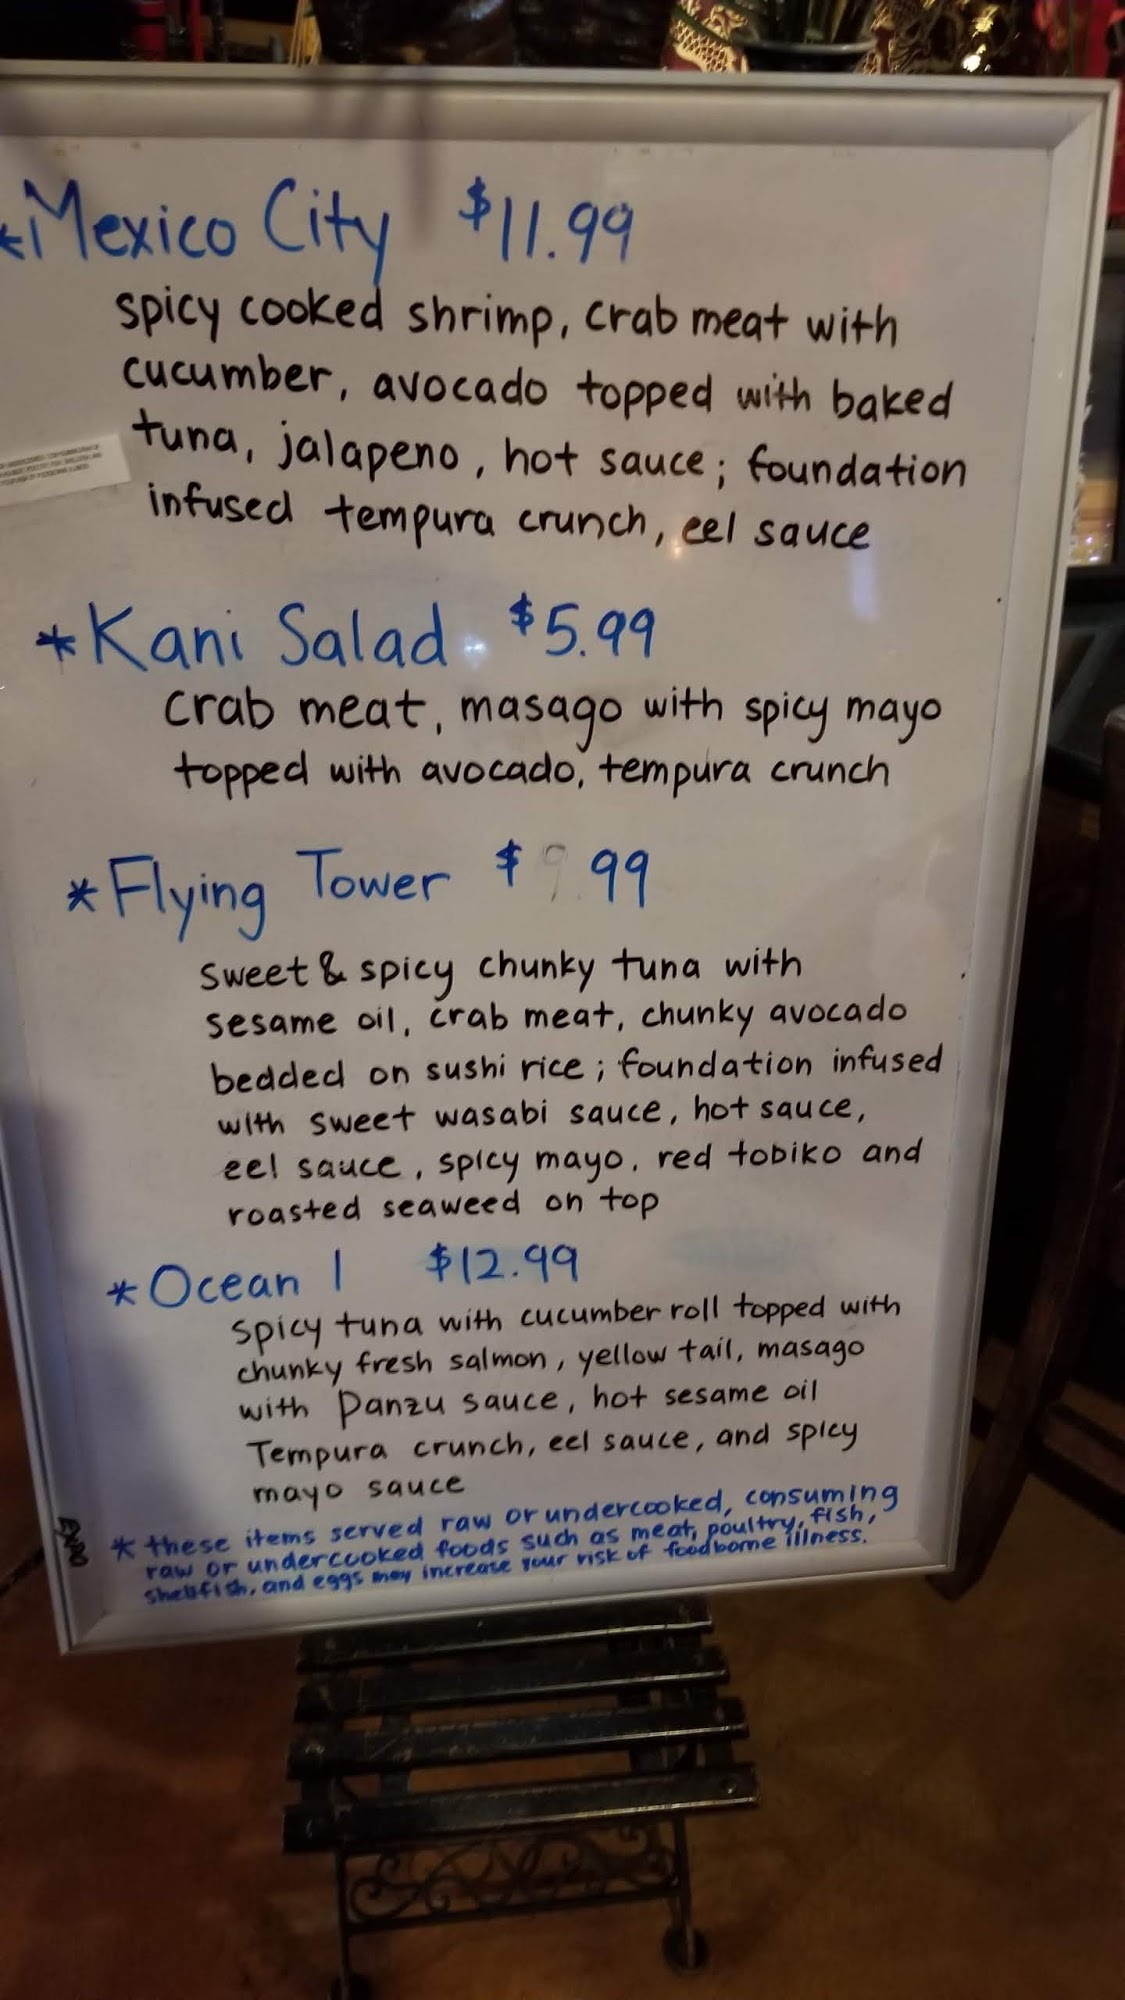 *Mexico City $11.99
spicy cooked shrimp, crab meat with
cucumber, avocado topped with baked
tuna, jalapeno, hot sauce; foundation
infused tempura crunch, eel sauce
*Kani Salad $5.99
crab meat, masago with spicy mayo
topped with avocado, tempura crunch
*Flying Tower $9.99
sweet & spicy chunky tuna with
sesame oil, crab meat, chunky avocado
bedded on sushi rice; foundation infused
with sweet wasabi sauce, hot sauce,
eel sauce, spicy mayo, red tobiko and
roasted seaweed on top
*Ocean 1 $12.99
spicy tuna with cucumber roll topped with
chunky fresh salmon, yellow tail, masago
with Panzu sauce, hot sesame oil
Tempura crunch, eel sauce, and spicy
mayo sauce
* these items served raw or undercooked, consuming
raw or undercooked foods such as meat, poultry, fish,
shellfish, and eggs may increase your risk of foodborne illness.